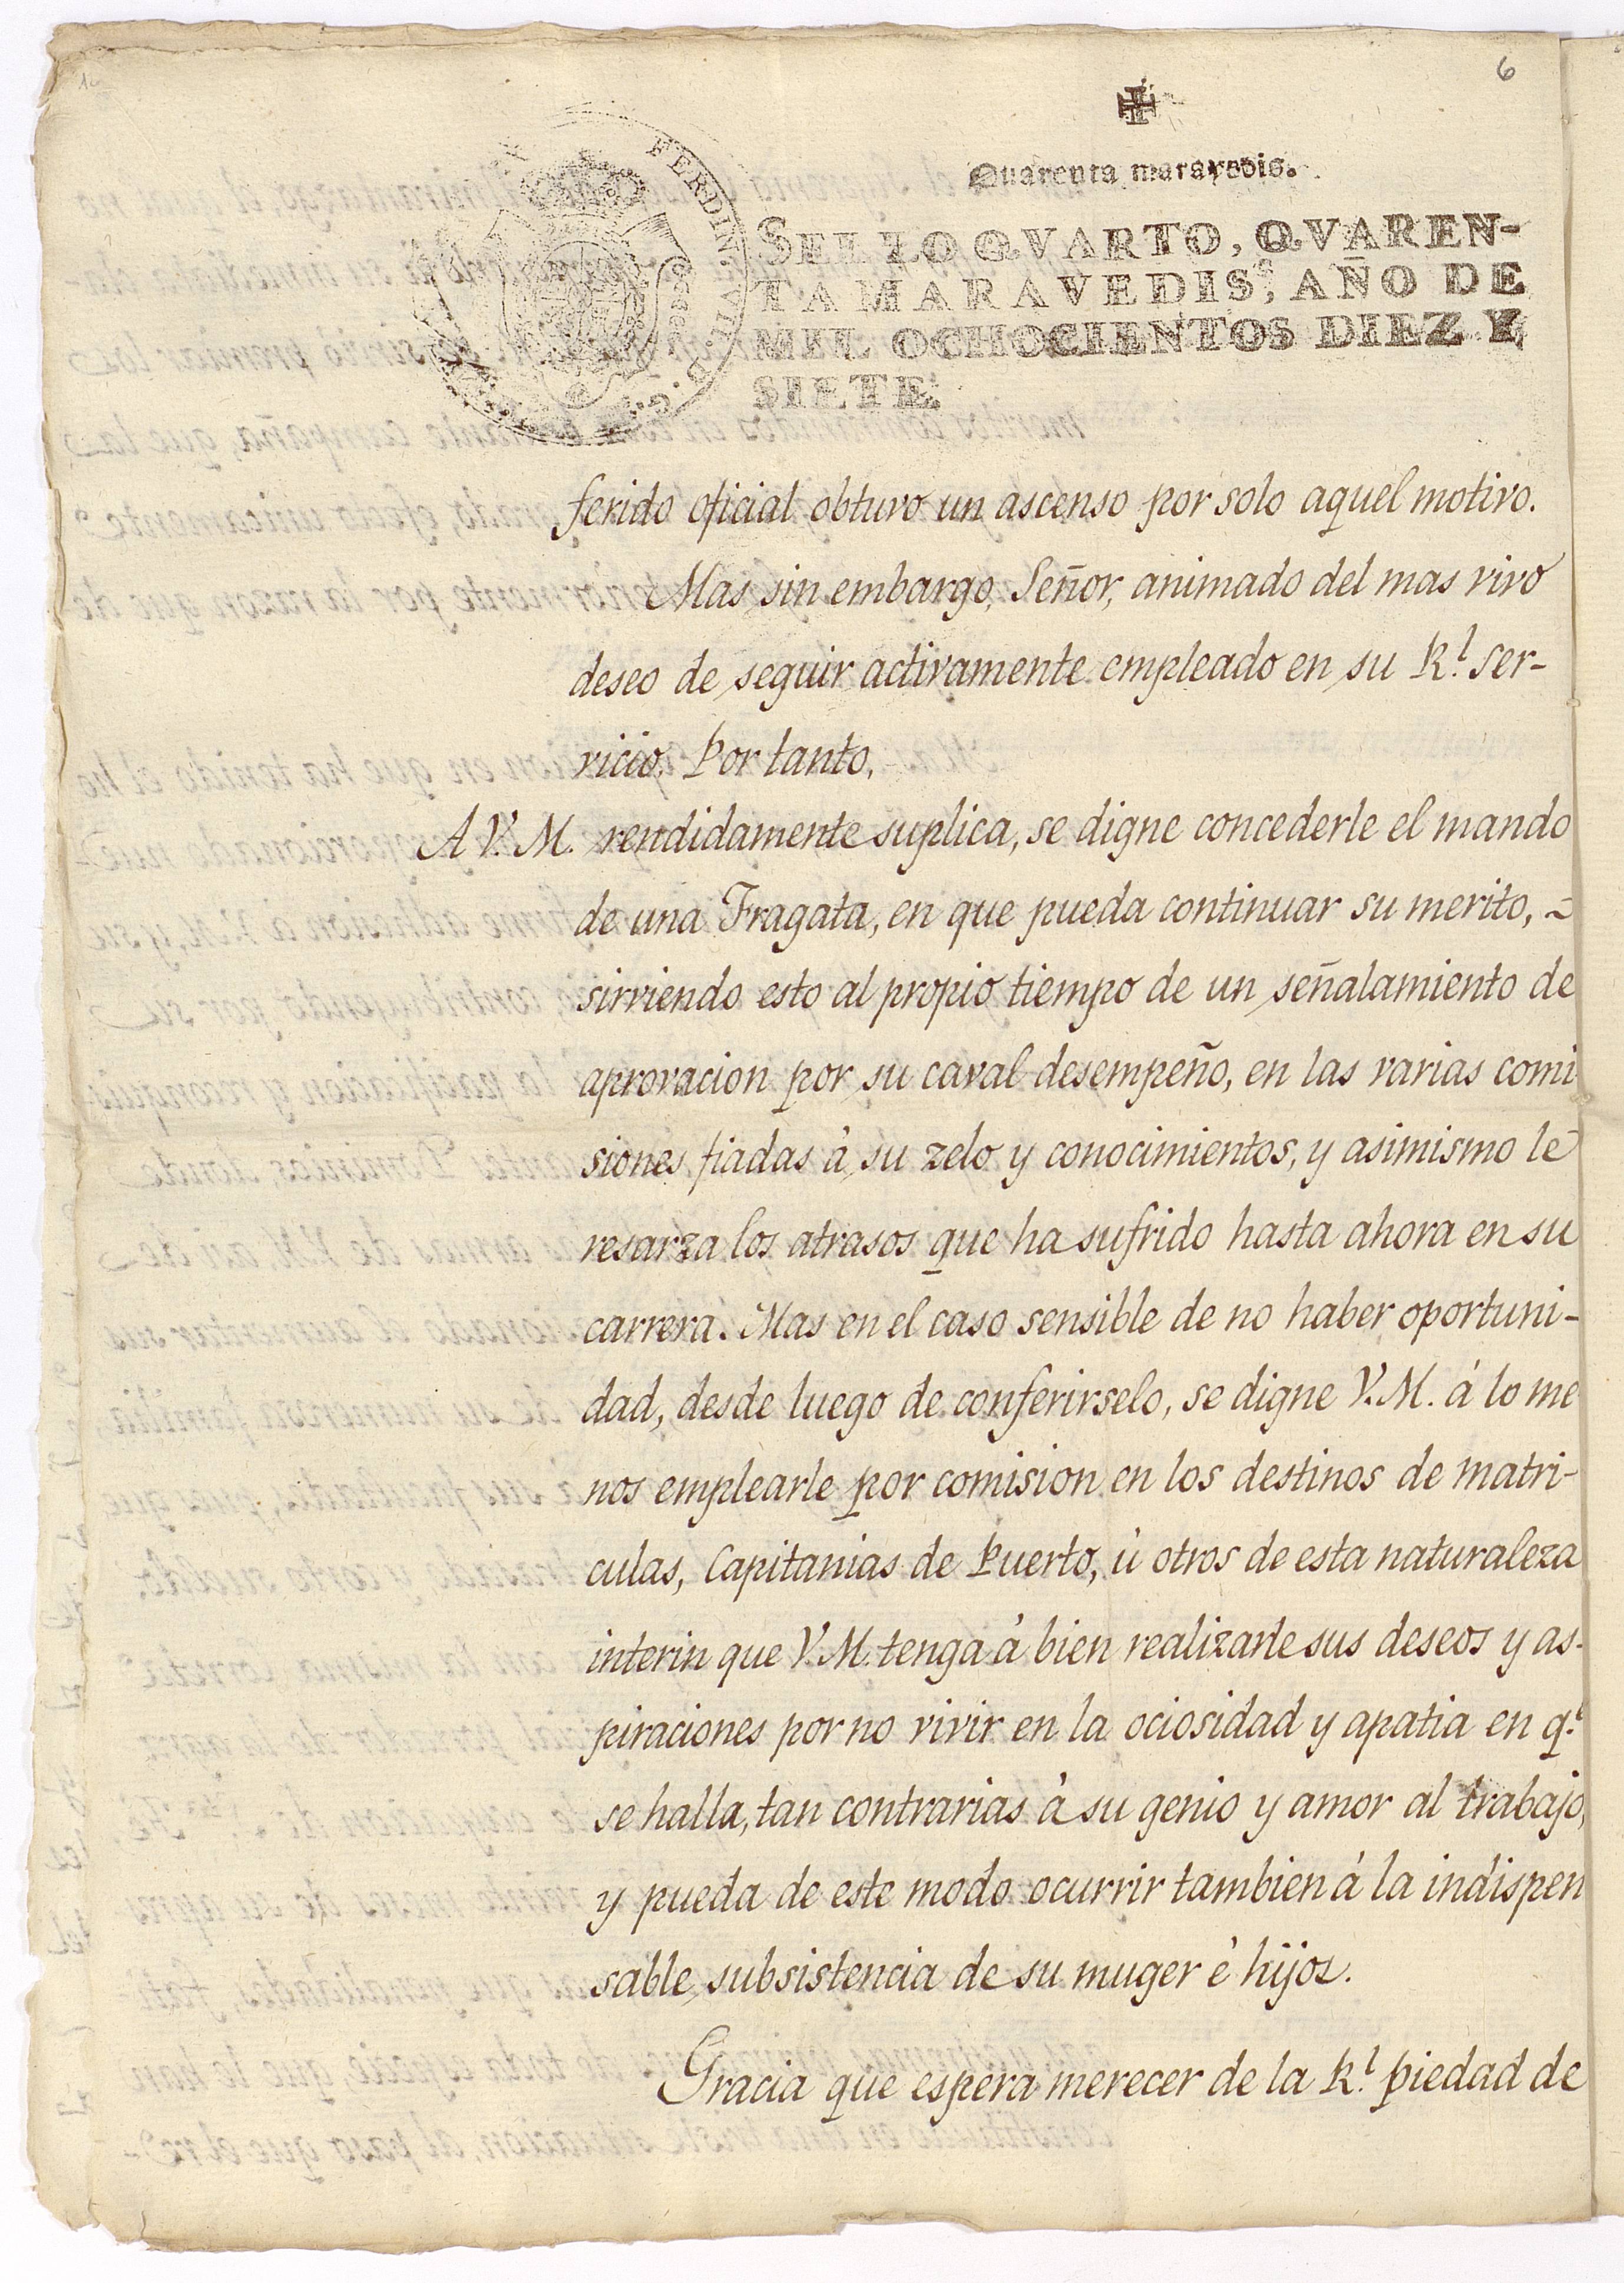 6
Quarenta maravedis.
FERDIN. VII. D. G.
SELLO QVARTO, QVAREN-
TA MARAVEDIS, AÑO DE
MIL OCHOCIENTOS DIEZ Y
SIETE.
ferido oficial obtuvo un ascenso por solo aquel motivo.
Mas sin embargo, Señor, animado del mas vivo
deseo de seguir activamente empleado en su Rl. Ser-
vicio. Por tanto,
A V. M. rendidamente suplica, se digne concederle el mando
de una Fragata, en que pueda continuar su merito,
sirviendo esto al propio tiempo de un señalamiento de
aprovacion por su caval desempeño, en las varias comi
siones fiadas à su zelo y conocimientos, y asimismo le
resarza los atrasos que ha sufrido hasta ahora en su
carrera. Mas en el caso sensible de no haber oportuni-
dad, desde luego de conferirselo, se digne V. M. á lo me
nos emplearle por comision en los destinos de matri-
culas, Capitanias de Puerto, ù otros de esta naturaleza
interin que V. M. tenga à bien realizarle sus deseos y as-
piraciones por no vivir en la ociosidad y apatia en qe.
se halla, tan contrarias à su genio y amor al trabajo,
y pueda de este modo ocurrir tambien à la indispen
sable subsistencia de su muger è hijos.
Gracia que espera merecer de la Rl. piedad de